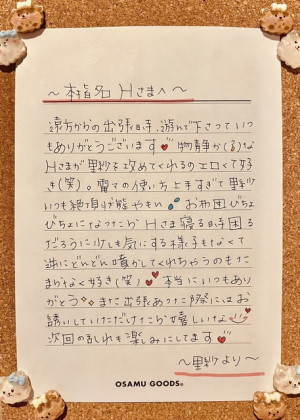 ～本指名 Hさまへ～
遠方からの出張時、遊んで下さっていつ
もありがとうございます♥物静か(?)な
Hさまが里紗を攻めてくれるのエロくて好
き(笑)。電マの使い方上手すぎて里紗
いつも絶頂状態やもん💦お布団びちょ
びちょになってたからHさま寝る時困る
だろうに少しも気にする様子もなくて
逆にどんどん噴かしてくれちゃうのもた
まらなく好き(笑)💕本当にいつもあり
がとう✧また出張あった際にはお
誘いしていただけたら嬉しいな◡̈♥
次回の乱れも楽しみにしてます♥
～里紗より～
OSAMU GOODS®